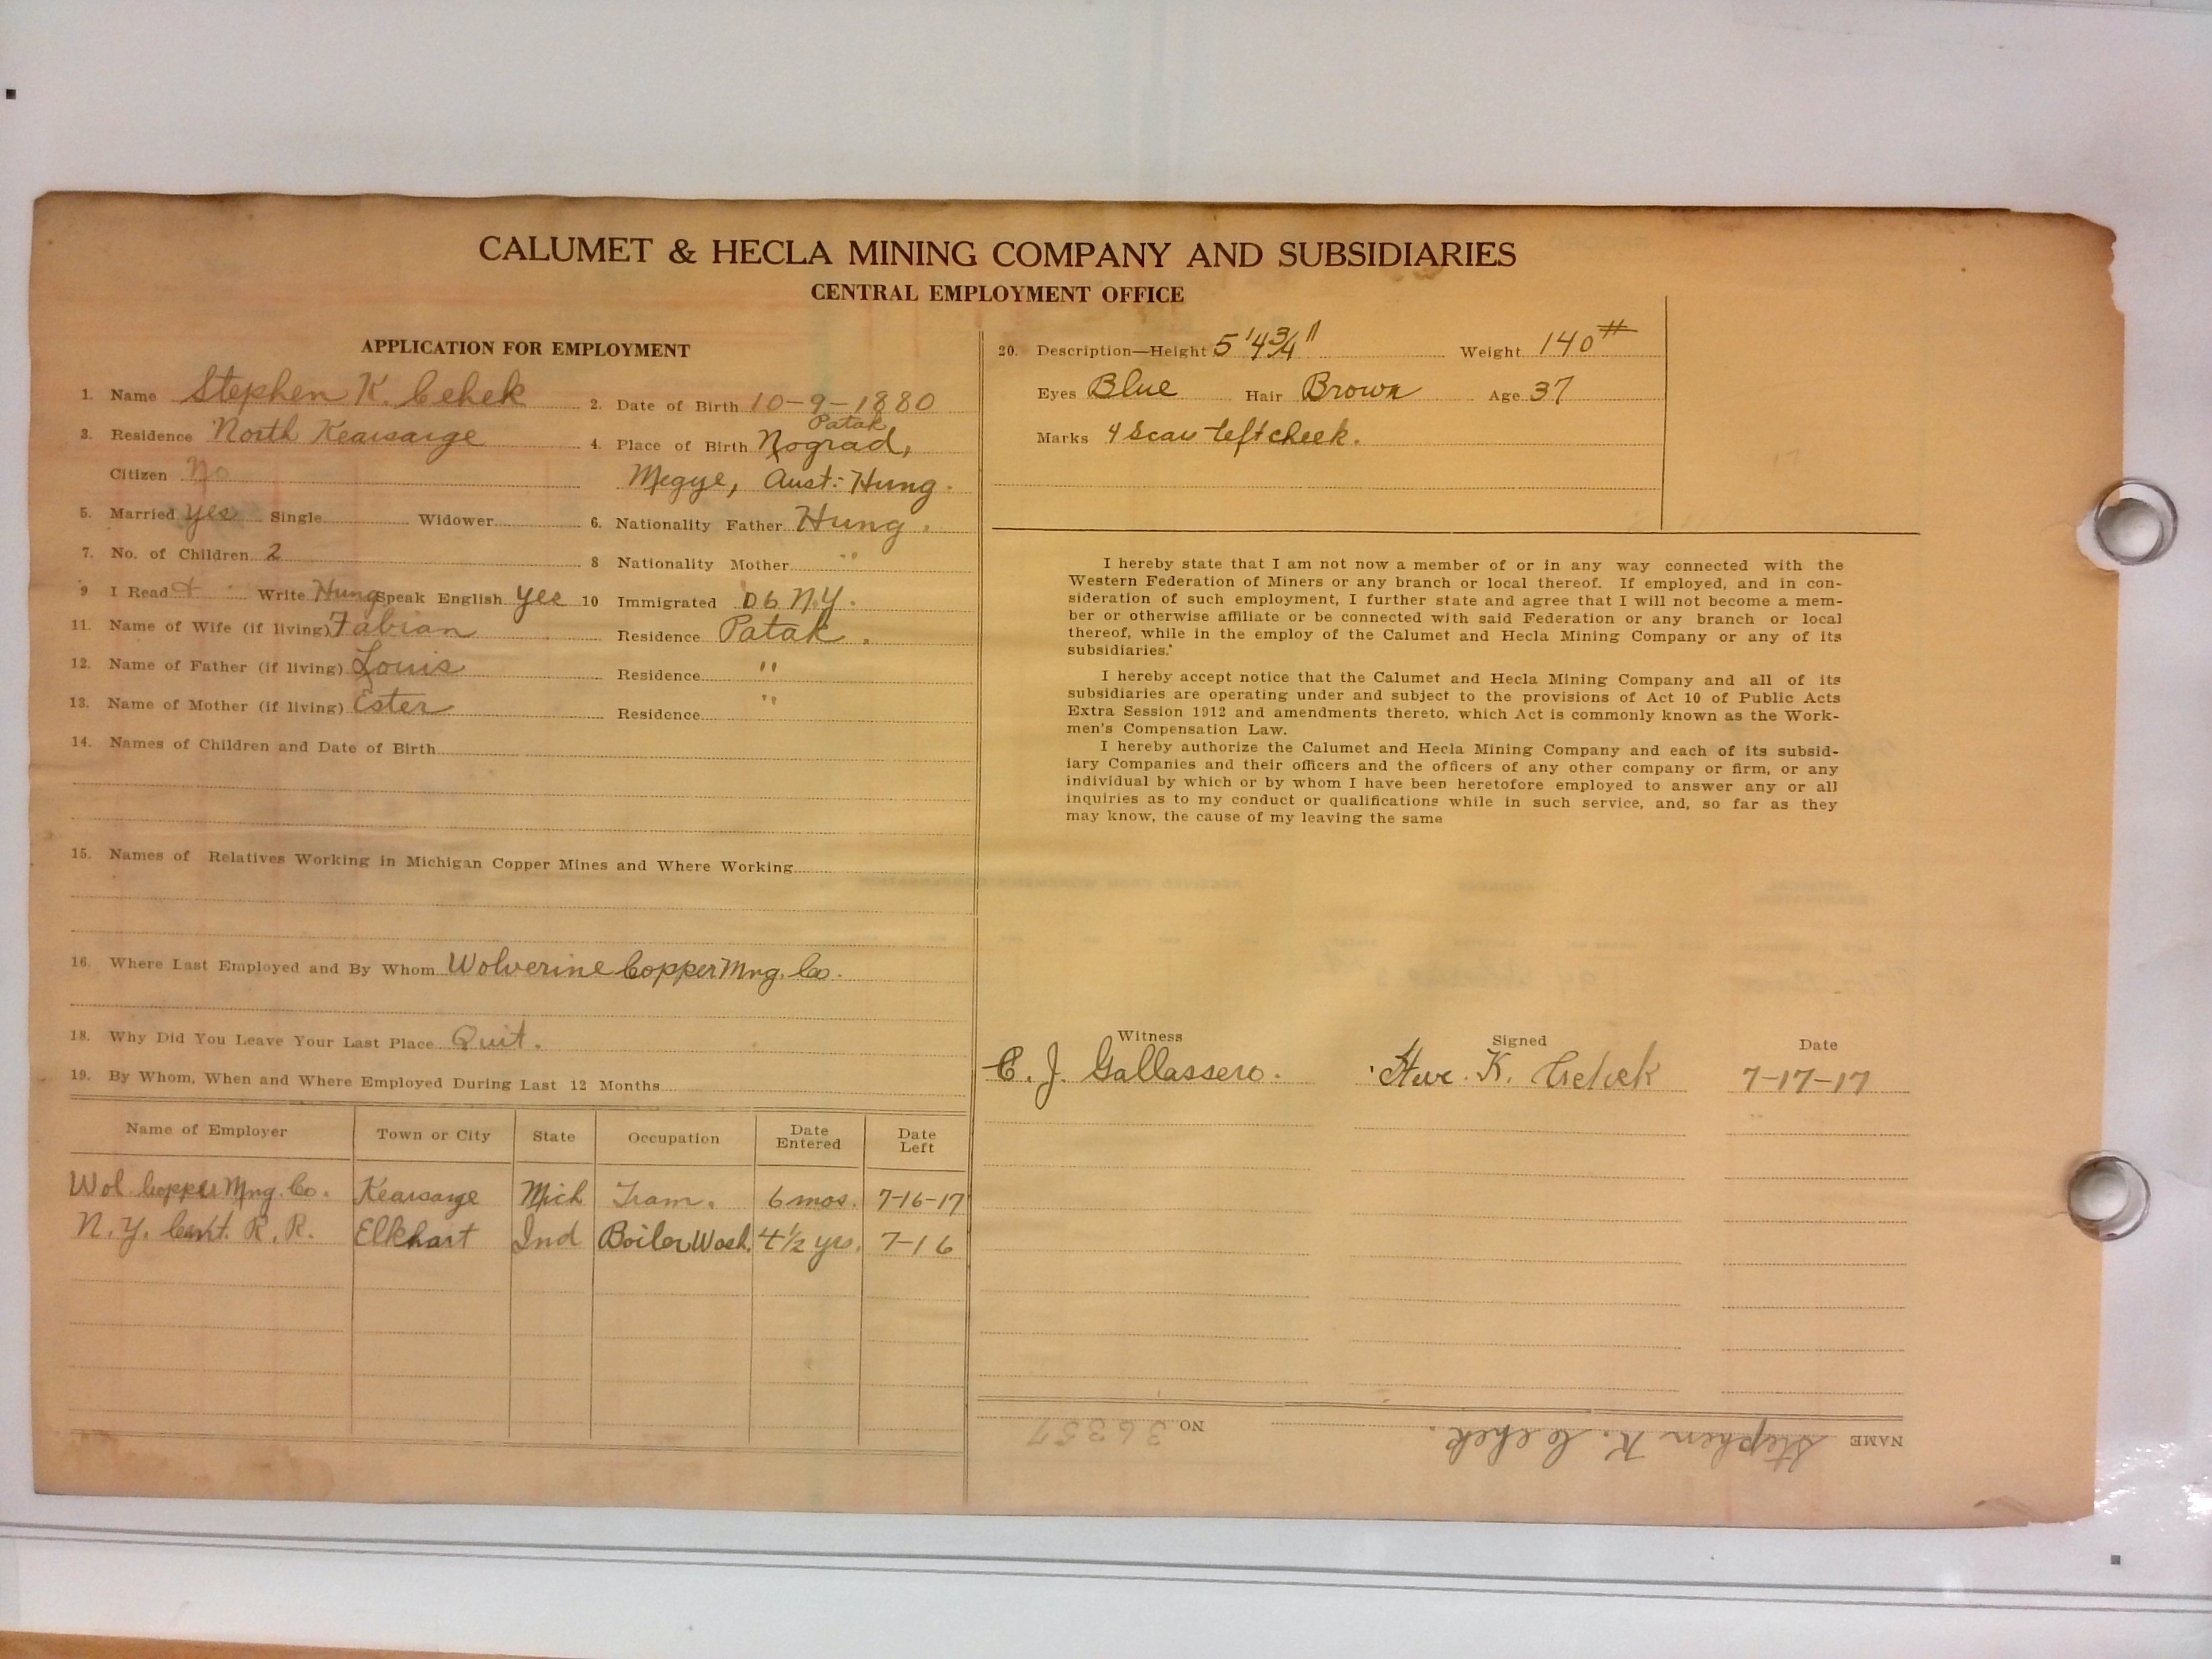 CALUMET & HECLA MINING COMPANY AND SUBSIDIARIES
CENTRAL EMPLOYMENT OFFICE
APPLICATION FOR EMPLOYMENT
1. Name Stephen K. Cehek
2. Date of Birth 10-9-1880
3. Residence North Kearsarge
Patak
4. Place of Birth Nograd,
Citizen No
Megye, Aust: Hung.
5. Married yes Single Widower
6. Nationality Father Hung.
7. No. of Children 2
8 Nationality Mother "
9 I Read + Write Hung Speak English yes
10 Immigrated 06 N.Y.
11. Name of Wife (if living) Fabian
Residence Patak.
12. Name of Father (if living) Louis
Residence "
13. Name of Mother (if living) Ester
Residence "
14. Names of Children and Date of Birth
15. Names of Relatives Working in Michigan Copper Mines and Where Working
16. Where Last Employed and By Whom Wolverine Copper Mng. Co.
18. Why Did You Leave Your Last Place Quit.
19. By Whom, When and Where Employed During Last 12 Months
Name of Employer Town or City State Occupation Date Entered Date Left
Wol Copper Mng. Co. Kearsarge Mich Tram. 6 mos. 7-16-17
N. Y. Cent. R. R. Elkhart Ind Boiler Wash. 4 1/2 yrs. 7-16
20. Description—Height 5' 4 3/4" Weight 140 #
Eyes Blue Hair Brown Age 37
Marks 4 Scars left cheek.
I hereby state that I am not now a member of or in any way connected with the
Western Federation of Miners or any branch or local thereof. If employed, and in con-
sideration of such employment, I further state and agree that I will not become a mem-
ber or otherwise affiliate or be connected with said Federation or any branch or local
thereof, while in the employ of the Calumet and Hecla Mining Company or any of its
subsidiaries.
I hereby accept notice that the Calumet and Hecla Mining Company and all of its
subsidiaries are operating under and subject to the provisions of Act 10 of Public Acts
Extra Session 1912 and amendments thereto, which Act is commonly known as the Work-
men's Compensation Law.
I hereby authorize the Calumet and Hecla Mining Company and each of its subsid-
iary Companies and their officers and the officers of any other company or firm, or any
individual by which or by whom I have been heretofore employed to answer any or all
inquiries as to my conduct or qualifications while in such service, and, so far as they
may know, the cause of my leaving the same
Witness Signed Date
C. J. Gallassero. Steve. K. Cehek 7-17-17
NAME Stephen K. Cehek. NO 36357